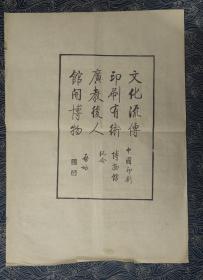 文化流傳
印刷有術
廣教後人
館開博物
中國印刷
博物館
紀念
啟功